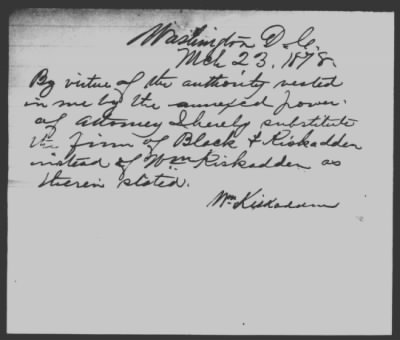 Washington D.C.
Mch 23, 1878.
By virtue of the authority vested
in me by the annexed power
of attorney I hereby substitute
the firm of Black & Kiskadden
instead of Wm Kiskadden as
therein stated.
Wm Kiskadden